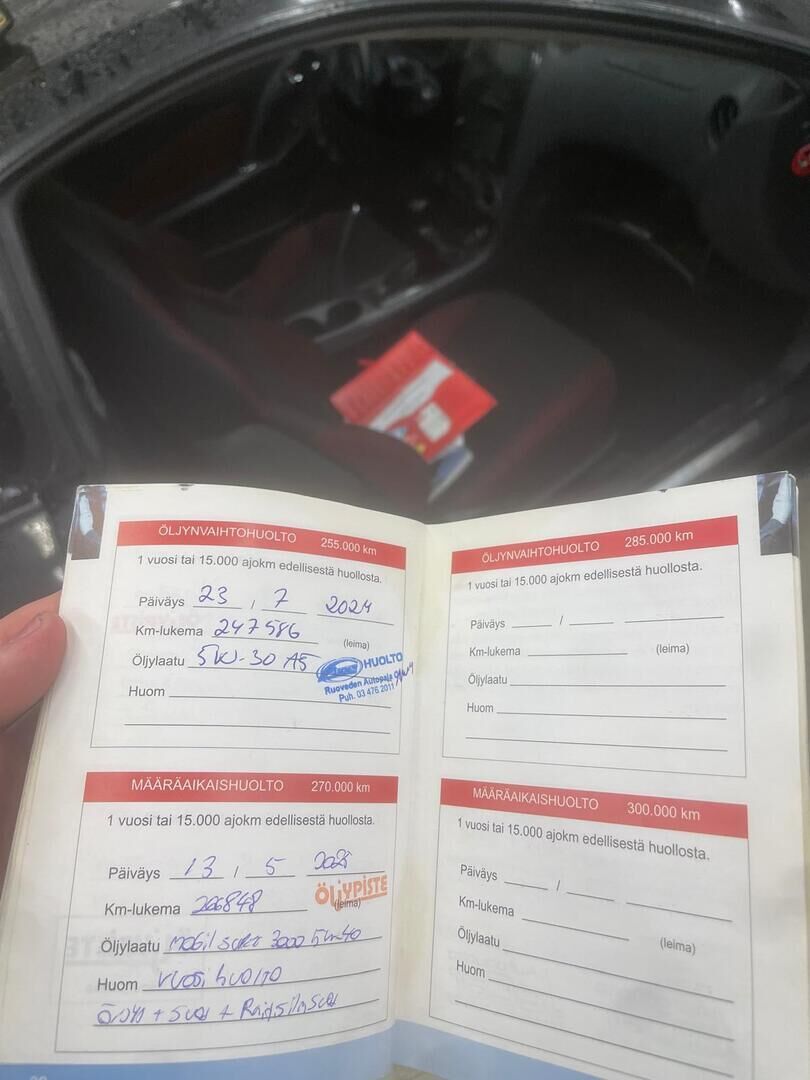 ÖLJYNVAIHTOHUOLTO 255.000 km
1 vuosi tai 15.000 ajokm edellisestä huollosta.
Päiväys 23 / 7 2024
Km-lukema 247586 (leima)
Öljylaatu 5W-30 A5
HUOLTO
Ruoveden Autopaja
Puh. 03 476 2011
Huom
MÄÄRÄAIKAISHUOLTO 270.000 km
1 vuosi tai 15.000 ajokm edellisestä huollosta.
Päiväys 13 / 5 2025
ÖLJYPISTE
Km-lukema 266848 (leima)
Öljylaatu mobil 3000 5w40
Huom vuosihuolto
Öljyt + suod +
ÖLJYNVAIHTOHUOLTO 285.000 km
1 vuosi tai 15.000 ajokm edellisestä huollosta.
Päiväys /
Km-lukema (leima)
Öljylaatu
Huom
MÄÄRÄAIKAISHUOLTO 300.000 km
1 vuosi tai 15.000 ajokm edellisestä huollosta.
Päiväys /
Km-lukema (leima)
Öljylaatu
Huom